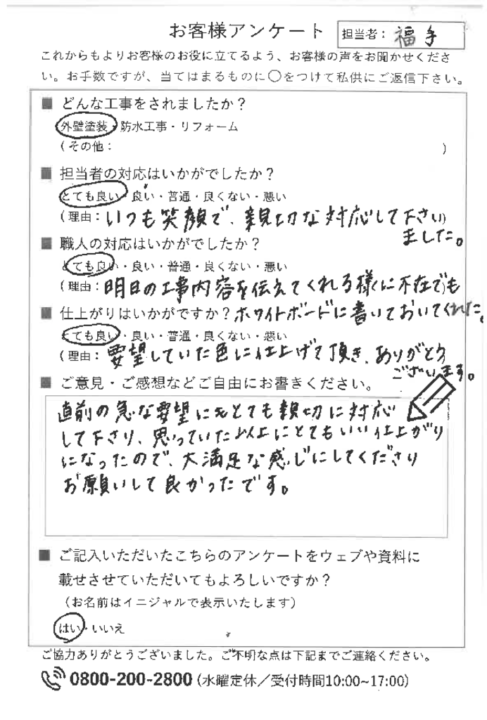 お客様アンケート
担当者: 福手
これからもよりお客様のお役に立てるよう、お客様の声をお聞かせくださ
い。お手数ですが、当てはまるものに〇をつけて私供にご返信下さい。
■ どんな工事をされましたか?
外壁塗装・防水工事・リフォーム
(その他: )
■ 担当者の対応はいかがでしたか?
とても良い・良い・普通・良くない・悪い
(理由: いつも笑顔で、親切な対応して下さい)
ました。
■ 職人の対応はいかがでしたか?
とても良い・良い・普通・良くない・悪い
(理由: 明日の工事内容を伝えてくれる様に不在でも
■ 仕上がりはいかがですか? ホワイトボードに書いておいてくれた。
とても良い・良い・普通・良くない・悪い
(理由: 要望していた色に仕上げて頂き、ありがとう
ございます。
■ ご意見・ご感想などご自由にお書きください。
直前の急な要望にもとても親切に対応
して下さり、思っていた以上にとてもいい仕上がり
になったので、大満足な感じにしてくださり
お願いして良かったです。
■ ご記入いただいたこちらのアンケートをウェブや資料に
載せさせていただいてもよろしいですか?
(お名前はイニシャルで表示いたします)
はい・いいえ
ご協力ありがとうございました。ご不明な点は下記までご連絡ください。
0800-200-2800 (水曜定休/受付時間10:00~17:00)